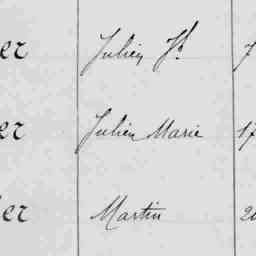 er Julien Jh 7
er Julien Marie 17
er Martin 20